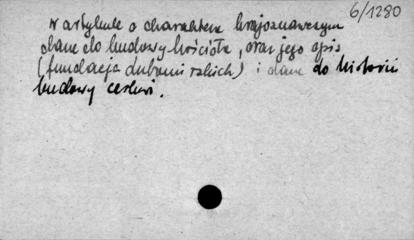 6/1280
W artykule o charakterze krajoznawczym
dane do budowy kościoła, oraz jego opis
(fundacja i) i dane do historii
budowy cerkwi.